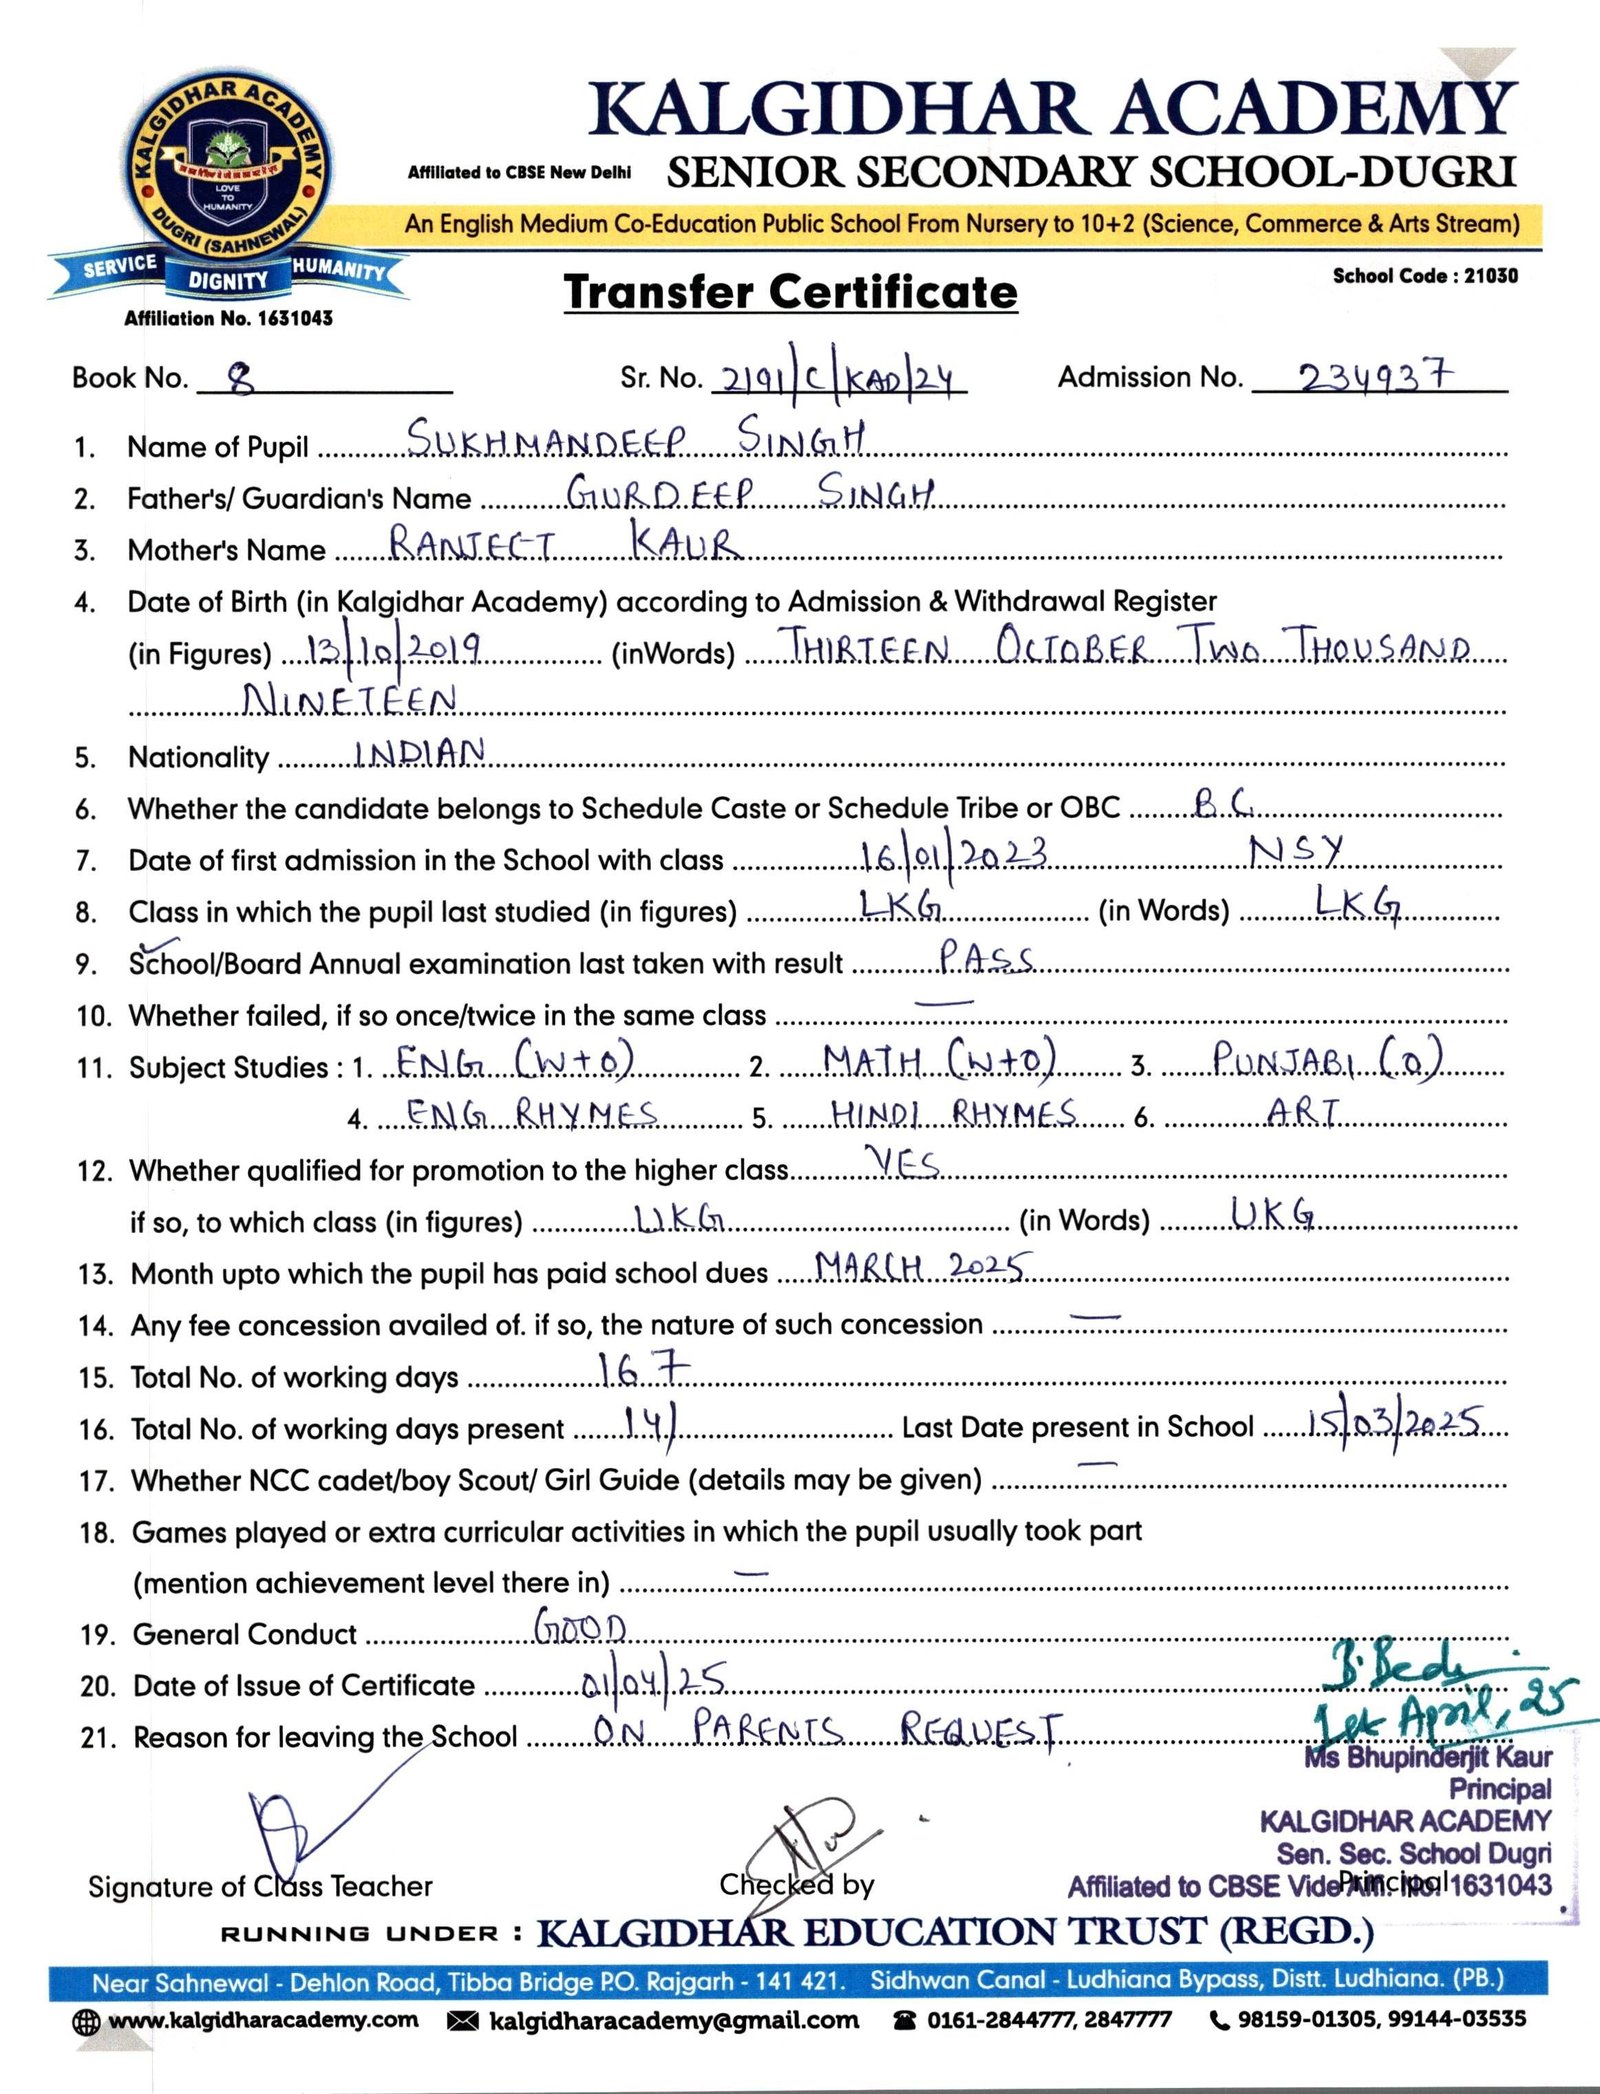 KALGIDHAR ACADEMY
DUGRI (SAHNEWAL)
LOVE
TO
HUMANITY
SERVICE DIGNITY HUMANITY
Affiliation No. 1631043
KALGIDHAR ACADEMY
Affiliated to CBSE New Delhi SENIOR SECONDARY SCHOOL-DUGRI
An English Medium Co-Education Public School From Nursery to 10+2 (Science, Commerce & Arts Stream)
Transfer Certificate
School Code : 21030
Book No. 8 Sr. No. 2191/C/KAD/24 Admission No. 234937
1. Name of Pupil SUKHMANDEEP SINGH
2. Father's/ Guardian's Name GURDEEP SINGH
3. Mother's Name RANJEET KAUR
4. Date of Birth (in Kalgidhar Academy) according to Admission & Withdrawal Register
(in Figures) 13/10/2019 (inWords) THIRTEEN OCTOBER TWO THOUSAND
NINETEEN
5. Nationality INDIAN
6. Whether the candidate belongs to Schedule Caste or Schedule Tribe or OBC B.C.
7. Date of first admission in the School with class 16/01/2023 NSY
8. Class in which the pupil last studied (in figures) LKG (in Words) LKG
9. School/Board Annual examination last taken with result PASS
10. Whether failed, if so once/twice in the same class —
11. Subject Studies : 1. ENG (W+O) 2. MATH (W+O) 3. PUNJABI (O)
4. ENG RHYMES 5. HINDI RHYMES 6. ART
12. Whether qualified for promotion to the higher class YES
if so, to which class (in figures) UKG (in Words) UKG
13. Month upto which the pupil has paid school dues MARCH 2025
14. Any fee concession availed of. if so, the nature of such concession —
15. Total No. of working days 167
16. Total No. of working days present 141 Last Date present in School 15/03/2025
17. Whether NCC cadet/boy Scout/ Girl Guide (details may be given) —
18. Games played or extra curricular activities in which the pupil usually took part
(mention achievement level there in) —
19. General Conduct GOOD
20. Date of Issue of Certificate 01/04/25
21. Reason for leaving the School ON PARENTS REQUEST
B. Bedi
1st April, 25
Ms Bhupinderjit Kaur
Principal
KALGIDHAR ACADEMY
Sen. Sec. School Dugri
Affiliated to CBSE Vide Aff. No. 1631043
Signature of Class Teacher Checked by Principal
RUNNING UNDER : KALGIDHAR EDUCATION TRUST (REGD.)
Near Sahnewal - Dehlon Road, Tibba Bridge P.O. Rajgarh - 141 421. Sidhwan Canal - Ludhiana Bypass, Distt. Ludhiana. (PB.)
www.kalgidharacademy.com kalgidharacademy@gmail.com 0161-2844777, 2847777 98159-01305, 99144-03535